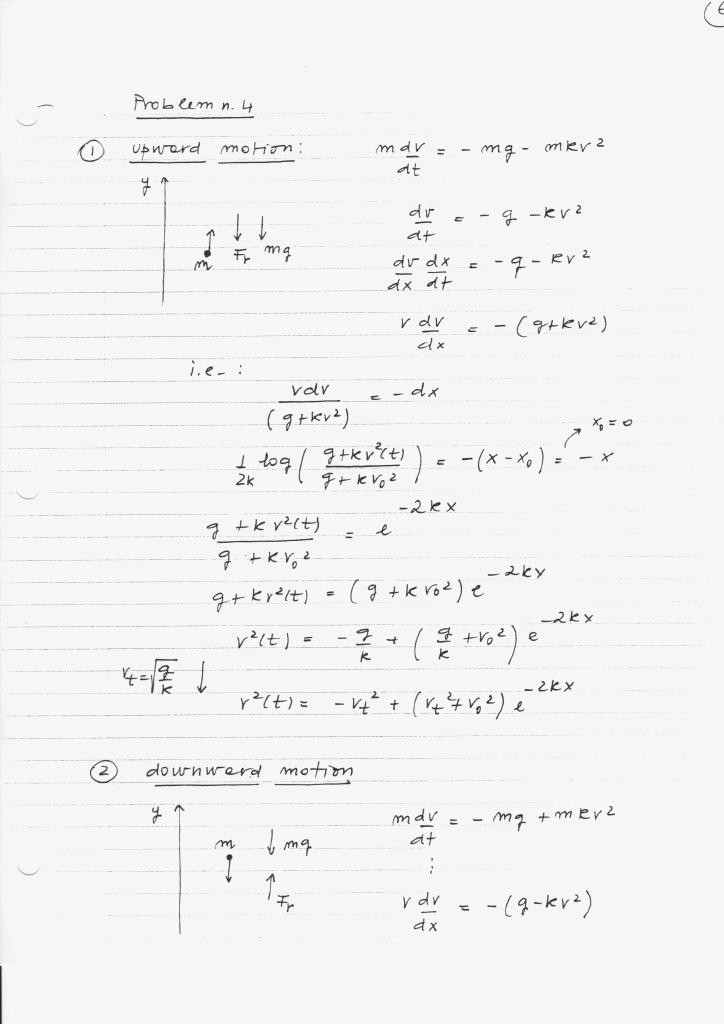 (6
Problem n. 4
① upward motion: m dv/dt = - mg - mkv²
y
dv/dt = - g - kv²
m Fr mg
dv/dx dx/dt = - g - kv²
v dv/dx = - (g+kv²)
i.e. :
vdv/(g+kv²) = - dx
x₀ = 0
1/2k log( g+kv²(t) / g+kv₀² ) = -(x-x₀) = - x
g +kv²(t) / g +kv₀² = e^-2kx
g+kv²(t) = (g +kv₀²) e^-2kx
v²(t) = - g/k + ( g/k +v₀²) e^-2kx
vt=√g/k ↓
v²(t) = - vt² + (vt²+v₀²) e^-2kx
② downward motion
y m dv/dt = - mg + mkv²
m ↓ mg
⋮
↑ Fr v dv/dx = - (g-kv²)